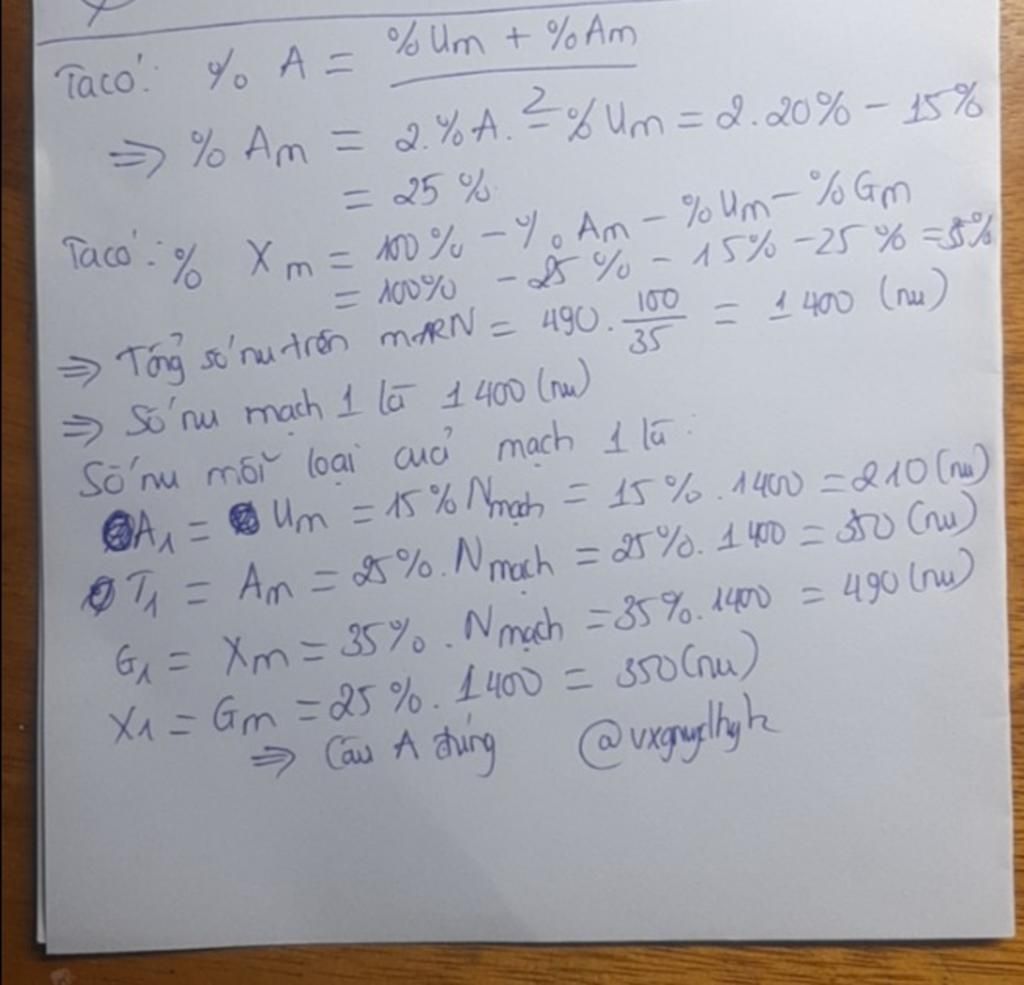 Ta có: % A = %Um + %Am
2
⇒ % Am = 2.%A. - %Um = 2.20% - 15%
= 25 %
Ta có: % Xm = 100% - % Am - %Um - %Gm
= 100% - 25 % - 15% - 25 % = 35%
⇒ Tổng số nu trên mARN = 490. 100/35 = 1 400 (nu)
⇒ Số nu mạch 1 là 1 400 (nu)
Số nu mỗi loại của mạch 1 là:
A1 = Um = 15% Nmạch = 15 %. 1400 = 210 (nu)
T1 = Am = 25%. Nmạch = 25%. 1 400 = 350 (nu)
G1 = Xm = 35%. Nmạch = 35%. 1400 = 490 (nu)
X1 = Gm = 25 %. 1400 = 350 (nu)
⇒ Câu A đúng